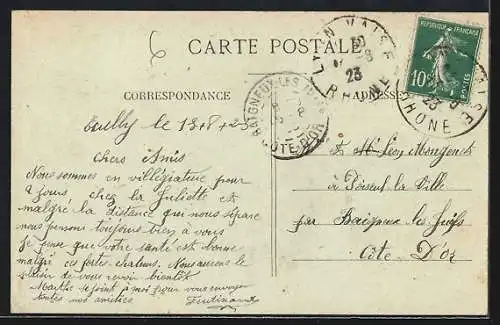 6
CARTE POSTALE
CORRESPONDANCE
ADRESSE
LYON VAISE
RHONE
23
BAIGNEUX-LES-JUIFS
COTE-D'OR
REPUBLIQUE FRANÇAISE
10
RHONE
Ecully le 13-8-23
Chers Amis
Nous sommes en villégiature pour
2 jours chez la Juliette et
malgré la distance qui nous sépare
nous pensons toujours bien à vous
Je pense que votre santé est bonne
malgré ces fortes chaleurs. Nous aurons le
plaisir de vous revoir bientôt
Marthe se joint à moi pour vous envoyer
toutes nos amitiés
Ferdinand
Léon
à la Ville
par Baigneux les Juifs
Côte D'or